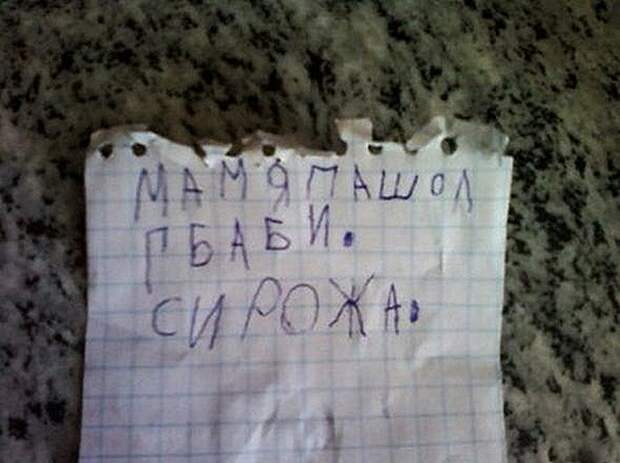 МАМЯПАШОЛ
ГБАБИ.
СИРОЖА.